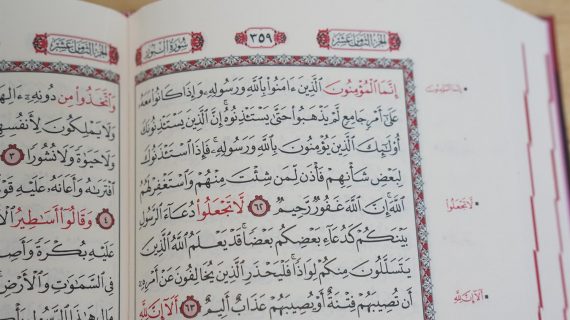 الجزء الثامن عشر
سورة النور
٣٥٩
الجزء الثامن عشر
إِنَّمَا ٱلْمُؤْمِنُونَ ٱلَّذِينَ ءَامَنُوا۟ بِٱللَّهِ وَرَسُولِهِۦ وَإِذَا كَانُوا۟ مَعَهُۥ
عَلَىٰٓ أَمْرٍ جَامِعٍ لَّمْ يَذْهَبُوا۟ حَتَّىٰ يَسْتَـْٔذِنُوهُ ۚ إِنَّ ٱلَّذِينَ يَسْتَـْٔذِنُونَكَ
أُو۟لَـٰٓئِكَ ٱلَّذِينَ يُؤْمِنُونَ بِٱللَّهِ وَرَسُولِهِۦ ۚ فَإِذَا ٱسْتَـْٔذَنُوكَ
لِبَعْضِ شَأْنِهِمْ فَأْذَن لِّمَن شِئْتَ مِنْهُمْ وَٱسْتَغْفِرْ لَهُمُ
ٱللَّهَ ۚ إِنَّ ٱللَّهَ غَفُورٌ رَّحِيمٌ ٦٢ لَّا تَجْعَلُوا۟ دُعَآءَ ٱلرَّسُولِ
بَيْنَكُمْ كَدُعَآءِ بَعْضِكُم بَعْضًا ۚ قَدْ يَعْلَمُ ٱللَّهُ ٱلَّذِينَ
يَتَسَلَّلُونَ مِنكُمْ لِوَاذًا ۚ فَلْيَحْذَرِ ٱلَّذِينَ يُخَالِفُونَ عَنْ أَمْرِهِۦٓ
أَن تُصِيبَهُمْ فِتْنَةٌ أَوْ يُصِيبَهُمْ عَذَابٌ أَلِيمٌ ٦٣ أَلَآ إِنَّ لِلَّهِ
إِنَّمَا ٱلْمُؤْمِنُونَ
لَّا تَجْعَلُوا۟
أَلَآ إِنَّ لِلَّهِ
وَٱتَّخَذُوا۟ مِن دُونِهِۦٓ
وَلَا يَمْلِكُونَ لِأَنفُسِهِ
وَلَا حَيَوٰةً وَلَا نُشُورًا ٣
ٱفْتَرَىٰهُ وَأَعَانَهُۥ عَلَيْهِ
وَقَالُوٓا۟ أَسَـٰطِيرُ ٤
عَلَيْهِ بُكْرَةً
فِى ٱلسَّمَـٰوَٰتِ وَٱلْأَرْضِ
مَالِ هَـٰذَا ٱلرَّسُولِ